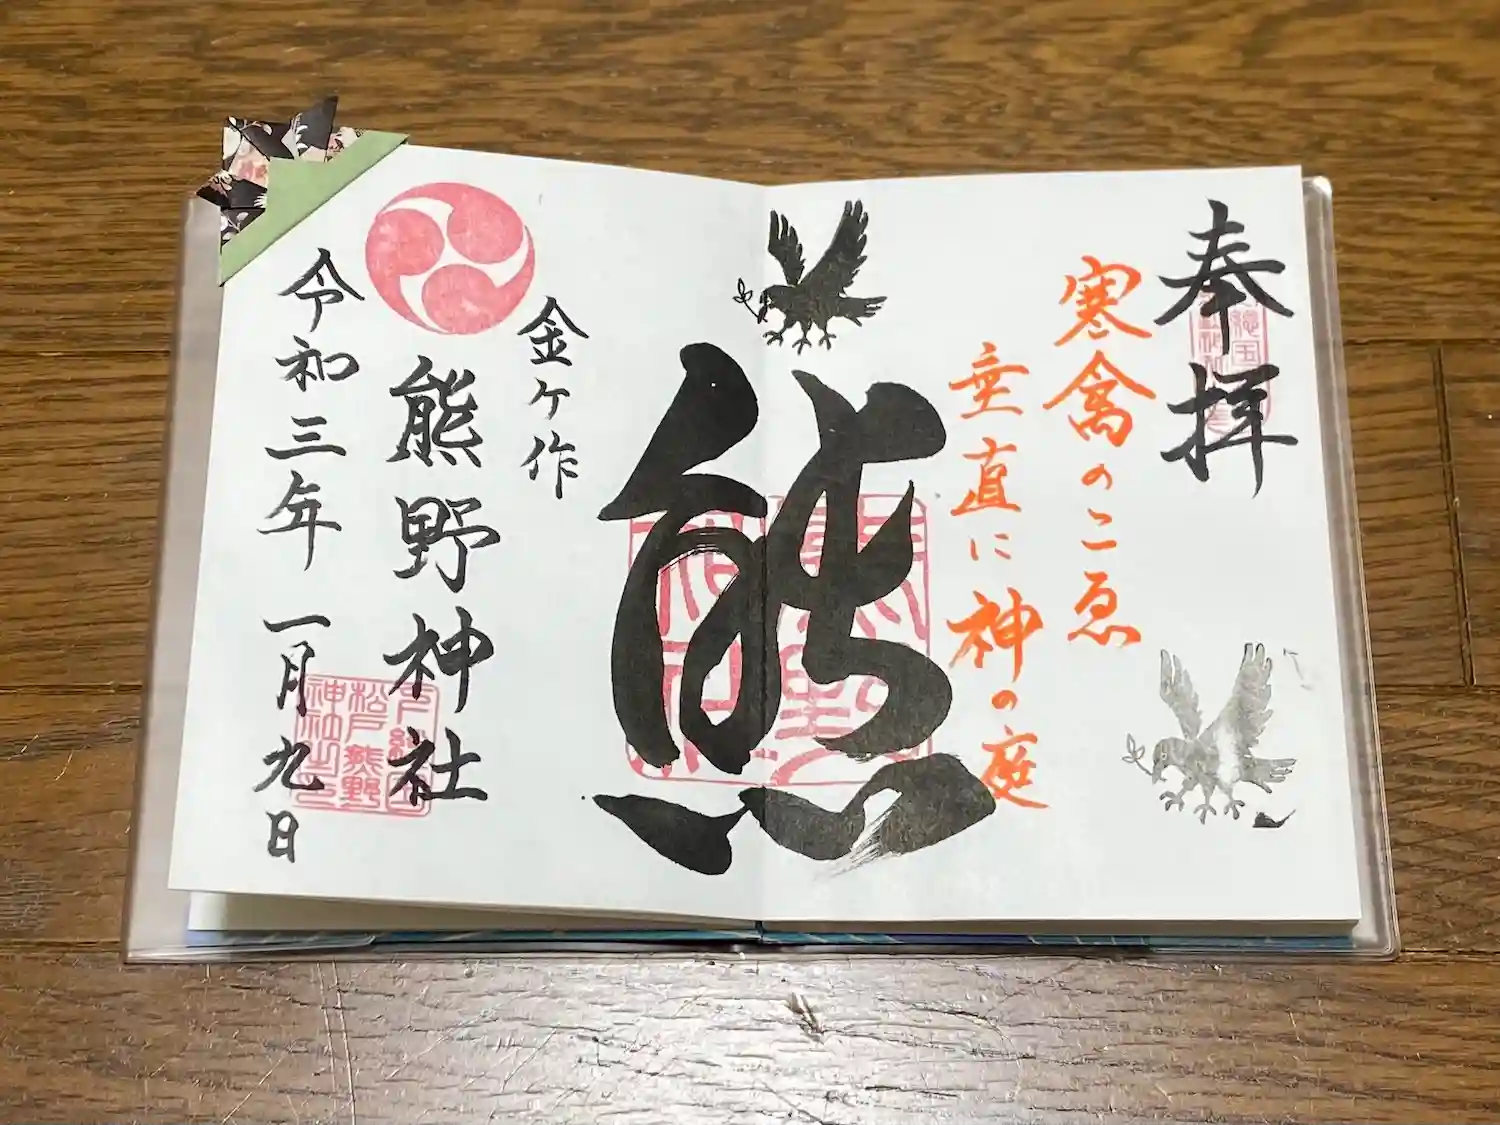 奉拝
寒禽のこゑ
垂直に神の庭
熊
金ヶ作
熊野神社
令和三年一月九日
松戸熊野
神社之印